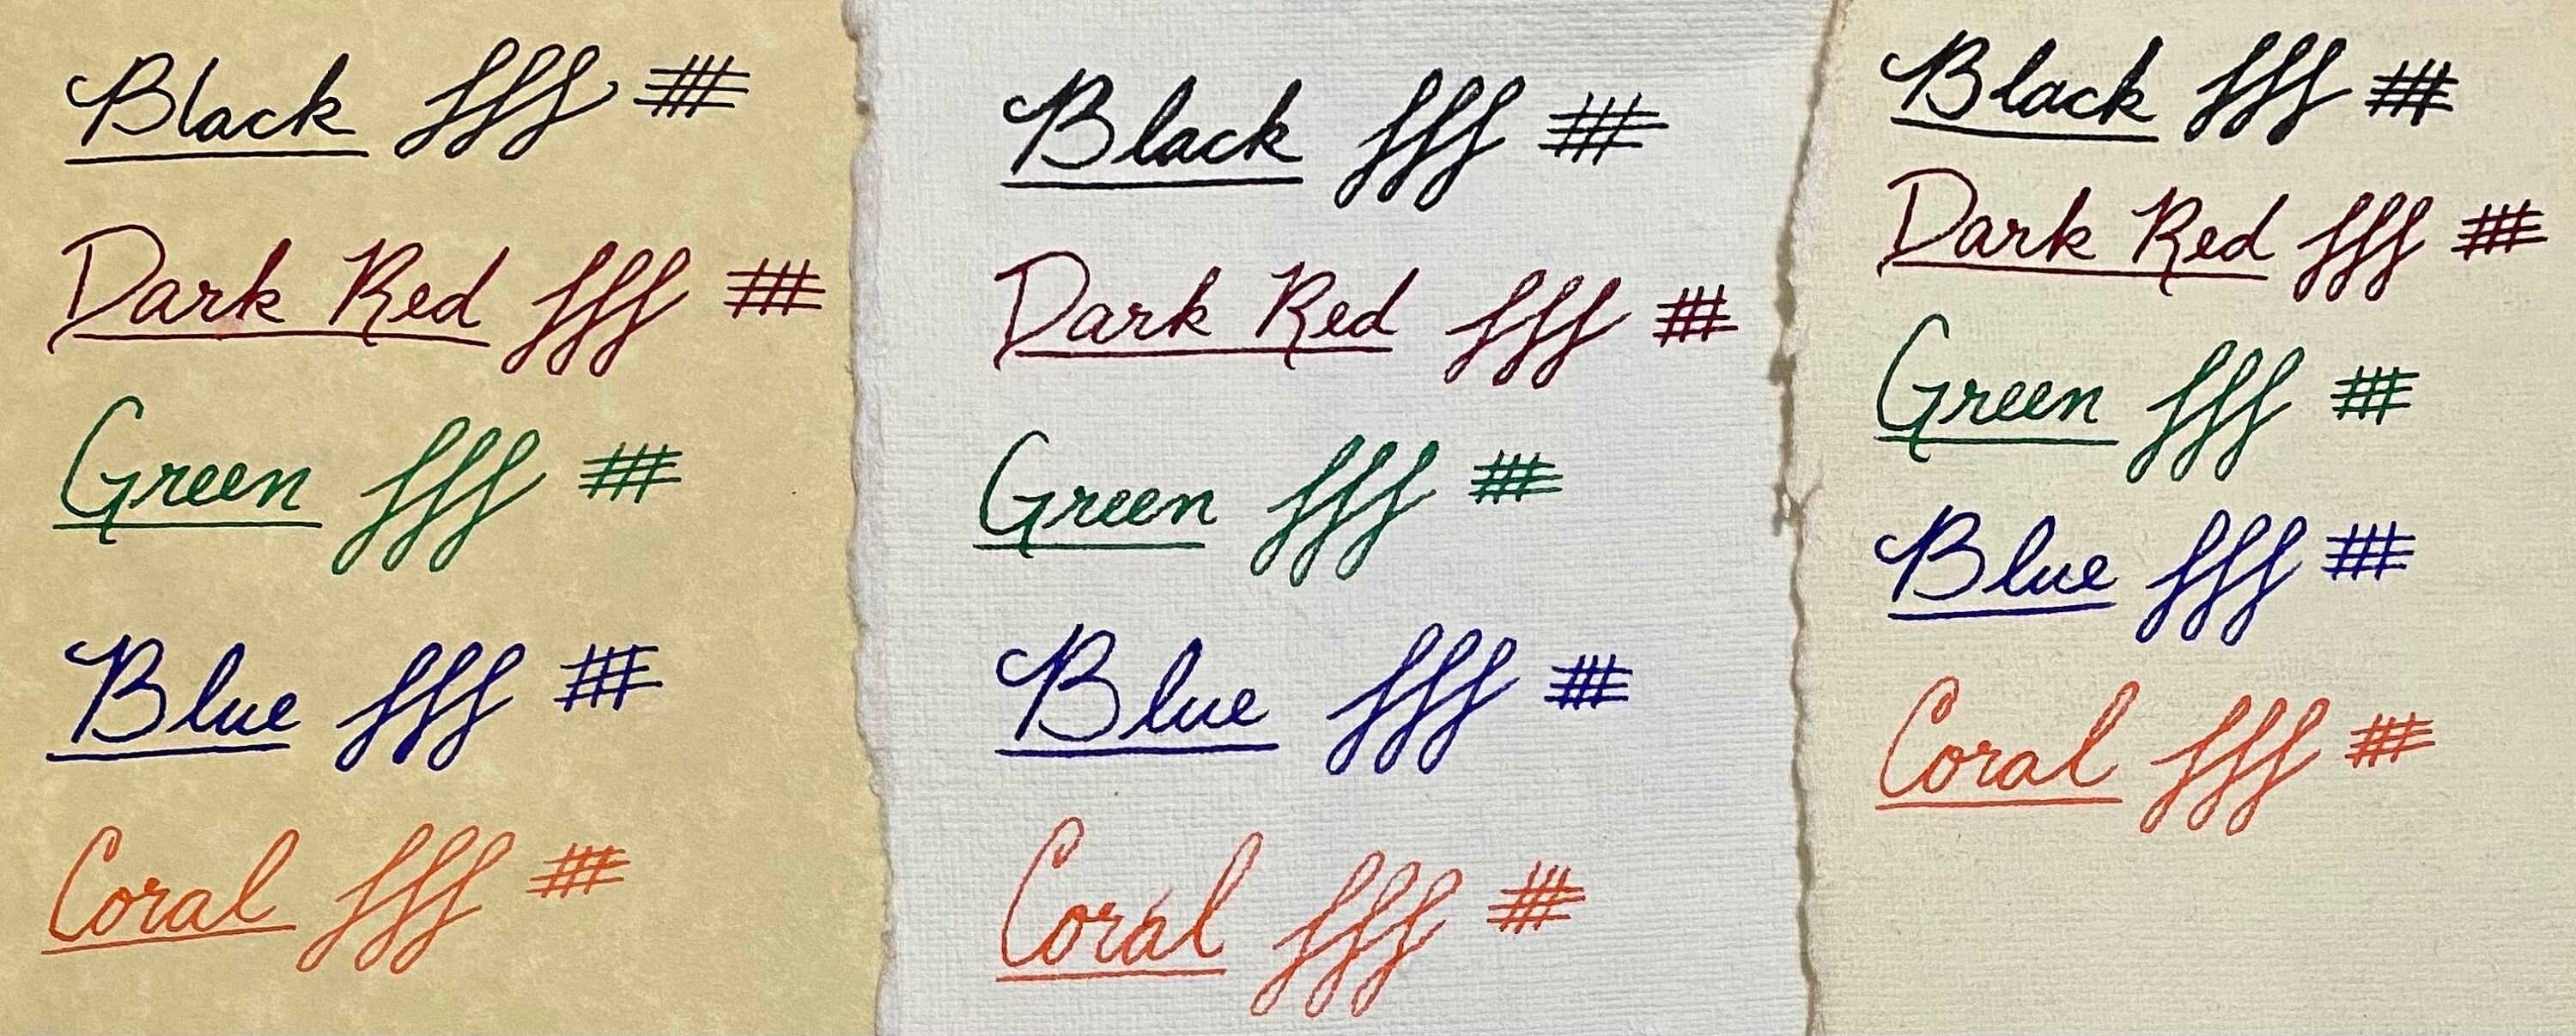 Black fff ###
Dark Red fff ###
Green fff ###
Blue fff ###
Coral fff ###
Black fff ###
Dark Red fff ###
Green fff ###
Blue fff ###
Coral fff ###
Black fff ###
Dark Red fff ###
Green fff ###
Blue fff ###
Coral fff ###